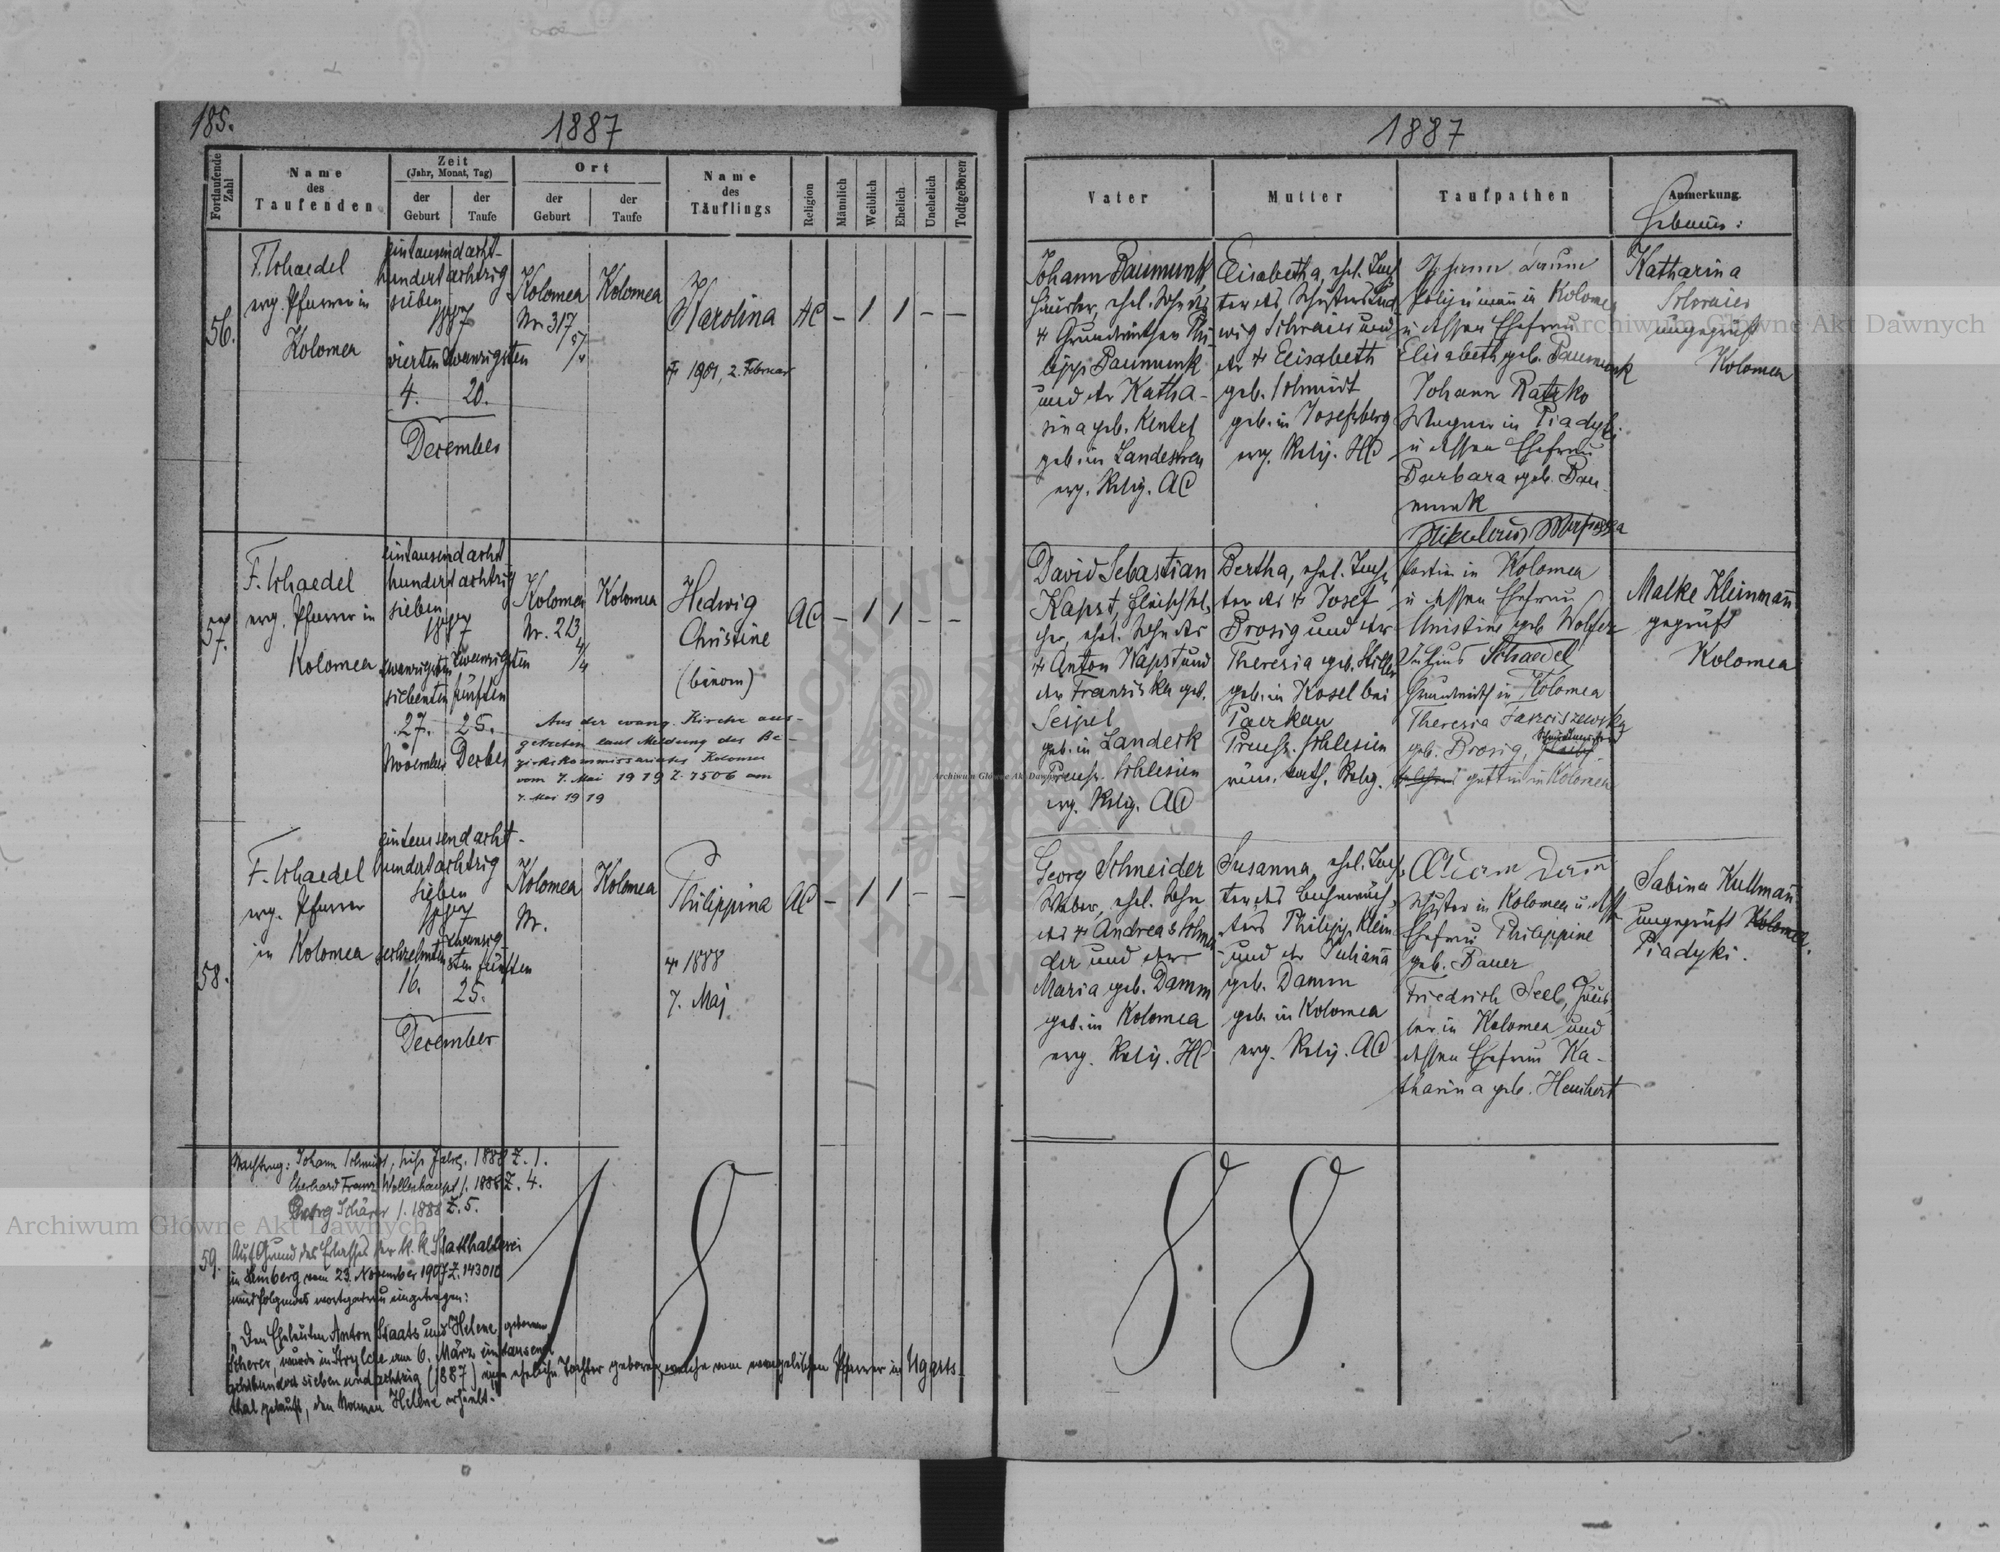 185.
1887
Fortlaufende Zahl
Name des Taufenden
Zeit
(Jahr, Monat, Tag)
der Geburt
der Taufe
Ort
der Geburt
der Taufe
Name des Täuflings
Religion
Männlich
Weiblich
Ehelich
Unehelich
Todtgeboren
56.
F. Schaedel
evg. Pfarrer in
Kolomea
eintausendacht-
hundertachtzig
sieben
1887
vierten zwanzigsten
4. 20.
December
Kolomea
Nr. 317
Kolomea
Karolina
† 1901, 2. Februar
AC – 1 1 – –
57.
F. Schaedel
evg. Pfarrer in
Kolomea
eintausendacht
hundertachtzig
sieben
1887
zwanzigsten zwanzigsten
siebenten fünften
27. 25.
November Decbr
Kolomea
Nr. 213
Kolomea
Hedwig
Christine
(binom)
AC – 1 1 – –
Aus der evang. Kirche aus-
getreten laut Meldung des Be-
zirkskommissariates Kolomea
vom 7. Mai 1919 Z. 7506 am
7. Mai 1919
58.
F. Schaedel
evg. Pfarrer
in Kolomea
eintausendacht-
hundertachtzig
sieben
1887
sechzehnten zwanzig-
sten fünften
16. 25.
December
Kolomea
Nr.
Kolomea
Philippina
† 1888
7. Maj
AC – 1 1 – –
Nachtrag: Johann Schmidt, siehe Jahrg. 1888 Z. 1.
Eberhard Franz Wollenhaupt /. 1888 Z. 4.
Georg Schärer /. 1888 Z. 5.
59.
Auf Grund des Erlasses der k. k. Statthalterei
in Lemberg vom 23. November 1907 Z. 143010
wird folgendes nachgetragen:
"Den Eheleuten Anton Staats und Helene geborene
Scherer, wurde in Strylche am 6. März eintausend
achthundert sieben und achtzig (1887) eine eheliche Tochter geboren, welche vom evangelischen Pfarrer in Ugarts-
thal getauft, den Namen Helene erhielt."
1887
Vater
Mutter
Taufpathen
Anmerkung.
Hebamme:
Johann Daumunk,
Häusler, ehel. Sohn des
† Grundwirthen Phi-
lipp Daumunk
und der Katha-
rina geb. Kentel
geb. in Landestreu
evg. Relig. AC
Elisabetha, ehel. Toch
ter des Schusters Lud
wig Schraier und
der † Elisabeth
geb. Schmidt
geb. in Josefsberg
evg. Relig. HC
Johann Daum
Polizeimann in Kolomea
u dessen Ehefrau
Elisabeth geb. Daumunk
Johann Ratzko
Wagner in Piadyki
u dessen Ehefrau
Barbara geb. Dau-
munk
Katharina
Schraier
ungeprüft
Kolomea
David Sebastian
Kapst, Fleischsel-
cher, ehel. Sohn des
† Anton Kapst und
der Franziska geb.
Seipel
geb. in Landeck
Preuss. Schlesien
evg. Relig. AC
Bertha, ehel. Toch
ter des † Josef
Brosig und der
Theresia geb. Stiller
geb. in Kosel bei
Patzkau
Preuss. Schlesien
röm. kath. Relig.
Nikolaus
Portier in Kolomea
u dessen Ehefrau
Christine geb. Wolfer
Julius Schaedel
Grundwirth in Kolomea
Theresia Tarciszewska
geb. Brosig,
gattin in Kolomea
Malke Kleinmann
geprüft
Kolomea
Georg Schneider
Weber, ehel. Sohn
des † Andreas Schnei
der und der
Maria geb. Damm
geb. in Kolomea
evg. Relig. HC
Susanna, ehel. Toch-
ter des Bahnwäch-
ters Philipp Klein
und der Juliana
geb. Damm
geb. in Kolomea
evg. Relig. AC
Adam Damm
Schuster in Kolomea u dess
Ehefrau Philippine
geb. Bauer
Friedrich Seel, Häus-
ler in Kolomea und
dessen Ehefrau Ka-
tharina geb. Heuchert
Sabina Kullmann
ungeprüft Kolomea
Piadyki.
Archiwum Główne Akt Dawnych
Archiwum Główne Akt Dawnych
Archiwum Główne Akt Dawnych